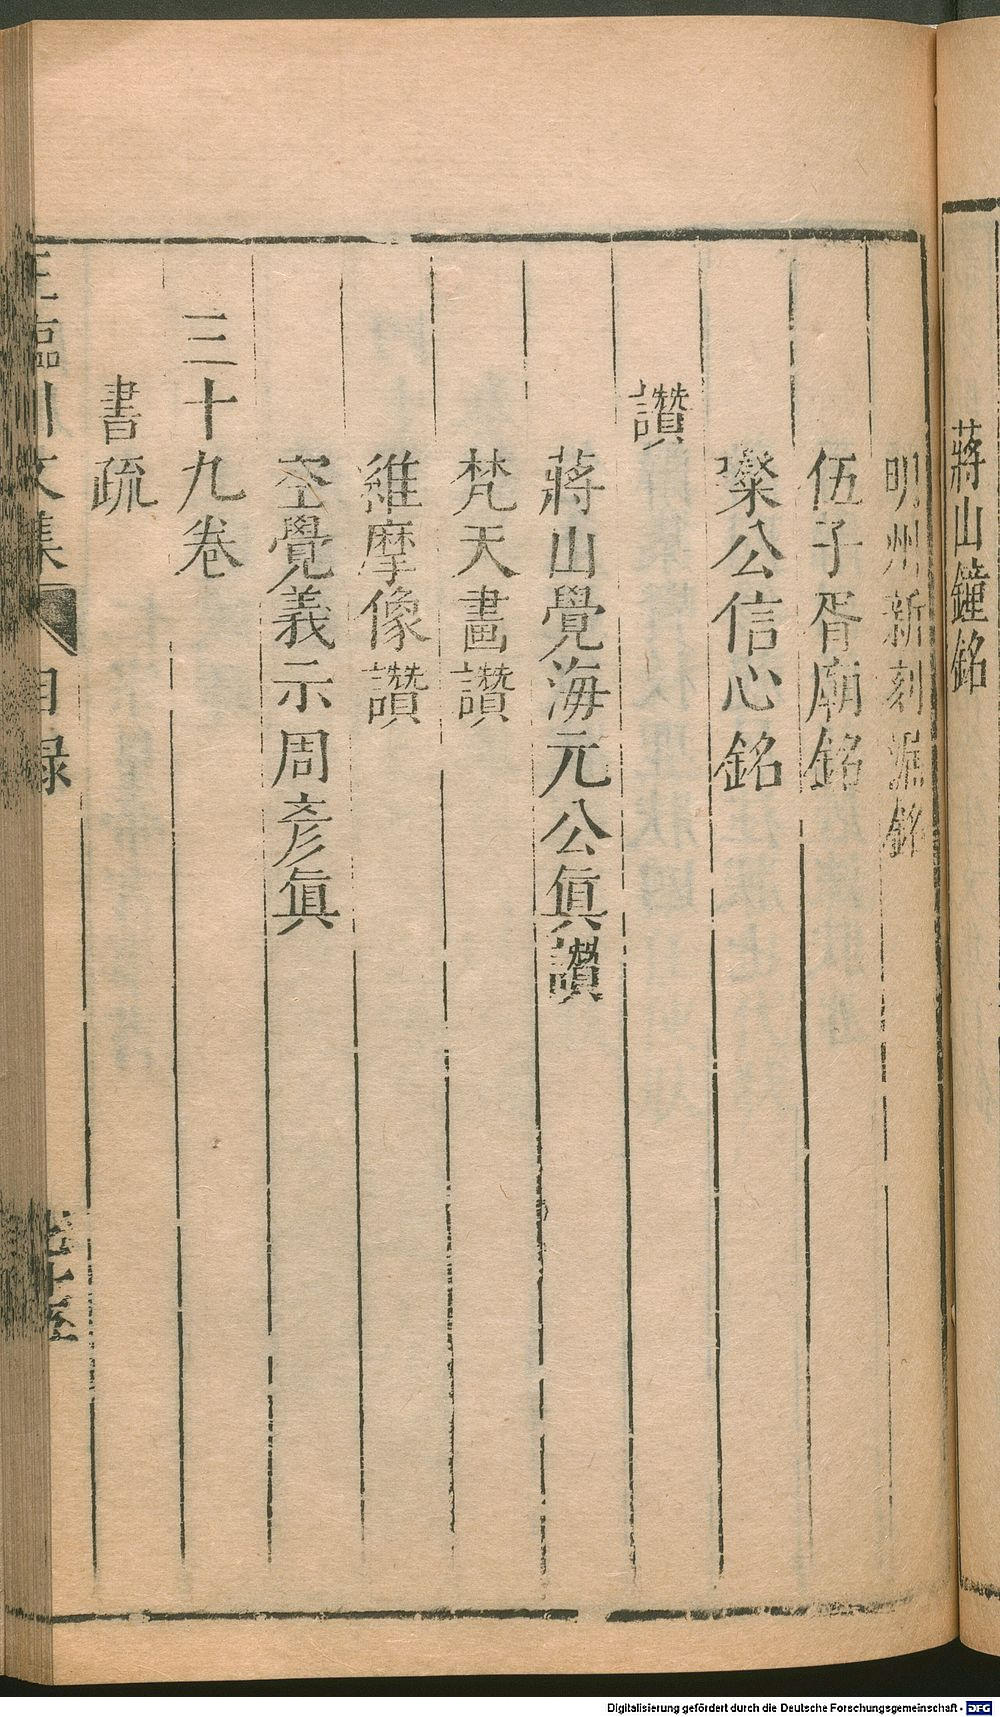 蔣山鐘銘
明州新刻漏銘
伍子胥廟銘
璨公信心銘
讚
蔣山覺海元公眞讚
梵天畫讚
維摩像讚
空覺義示周彥眞
三十九卷
書疏
王臨川文集 目録
Digitalisierung gefördert durch die Deutsche Forschungsgemeinschaft - DFG